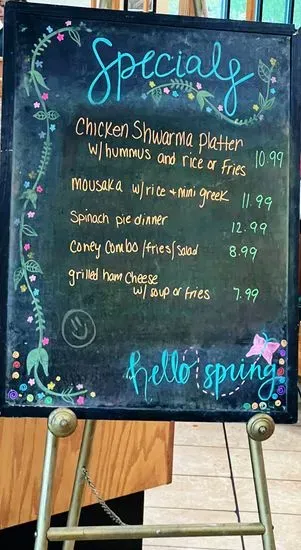 Specials
Chicken Shwarma Platter
w/hummus and rice or Fries 10.99
Mousaka w/rice + mini greek 11.99
Spinach pie dinner 12.99
Coney Combo/fries/salad 8.99
grilled ham Cheese
w/ soup or fries 7.99
hello spring